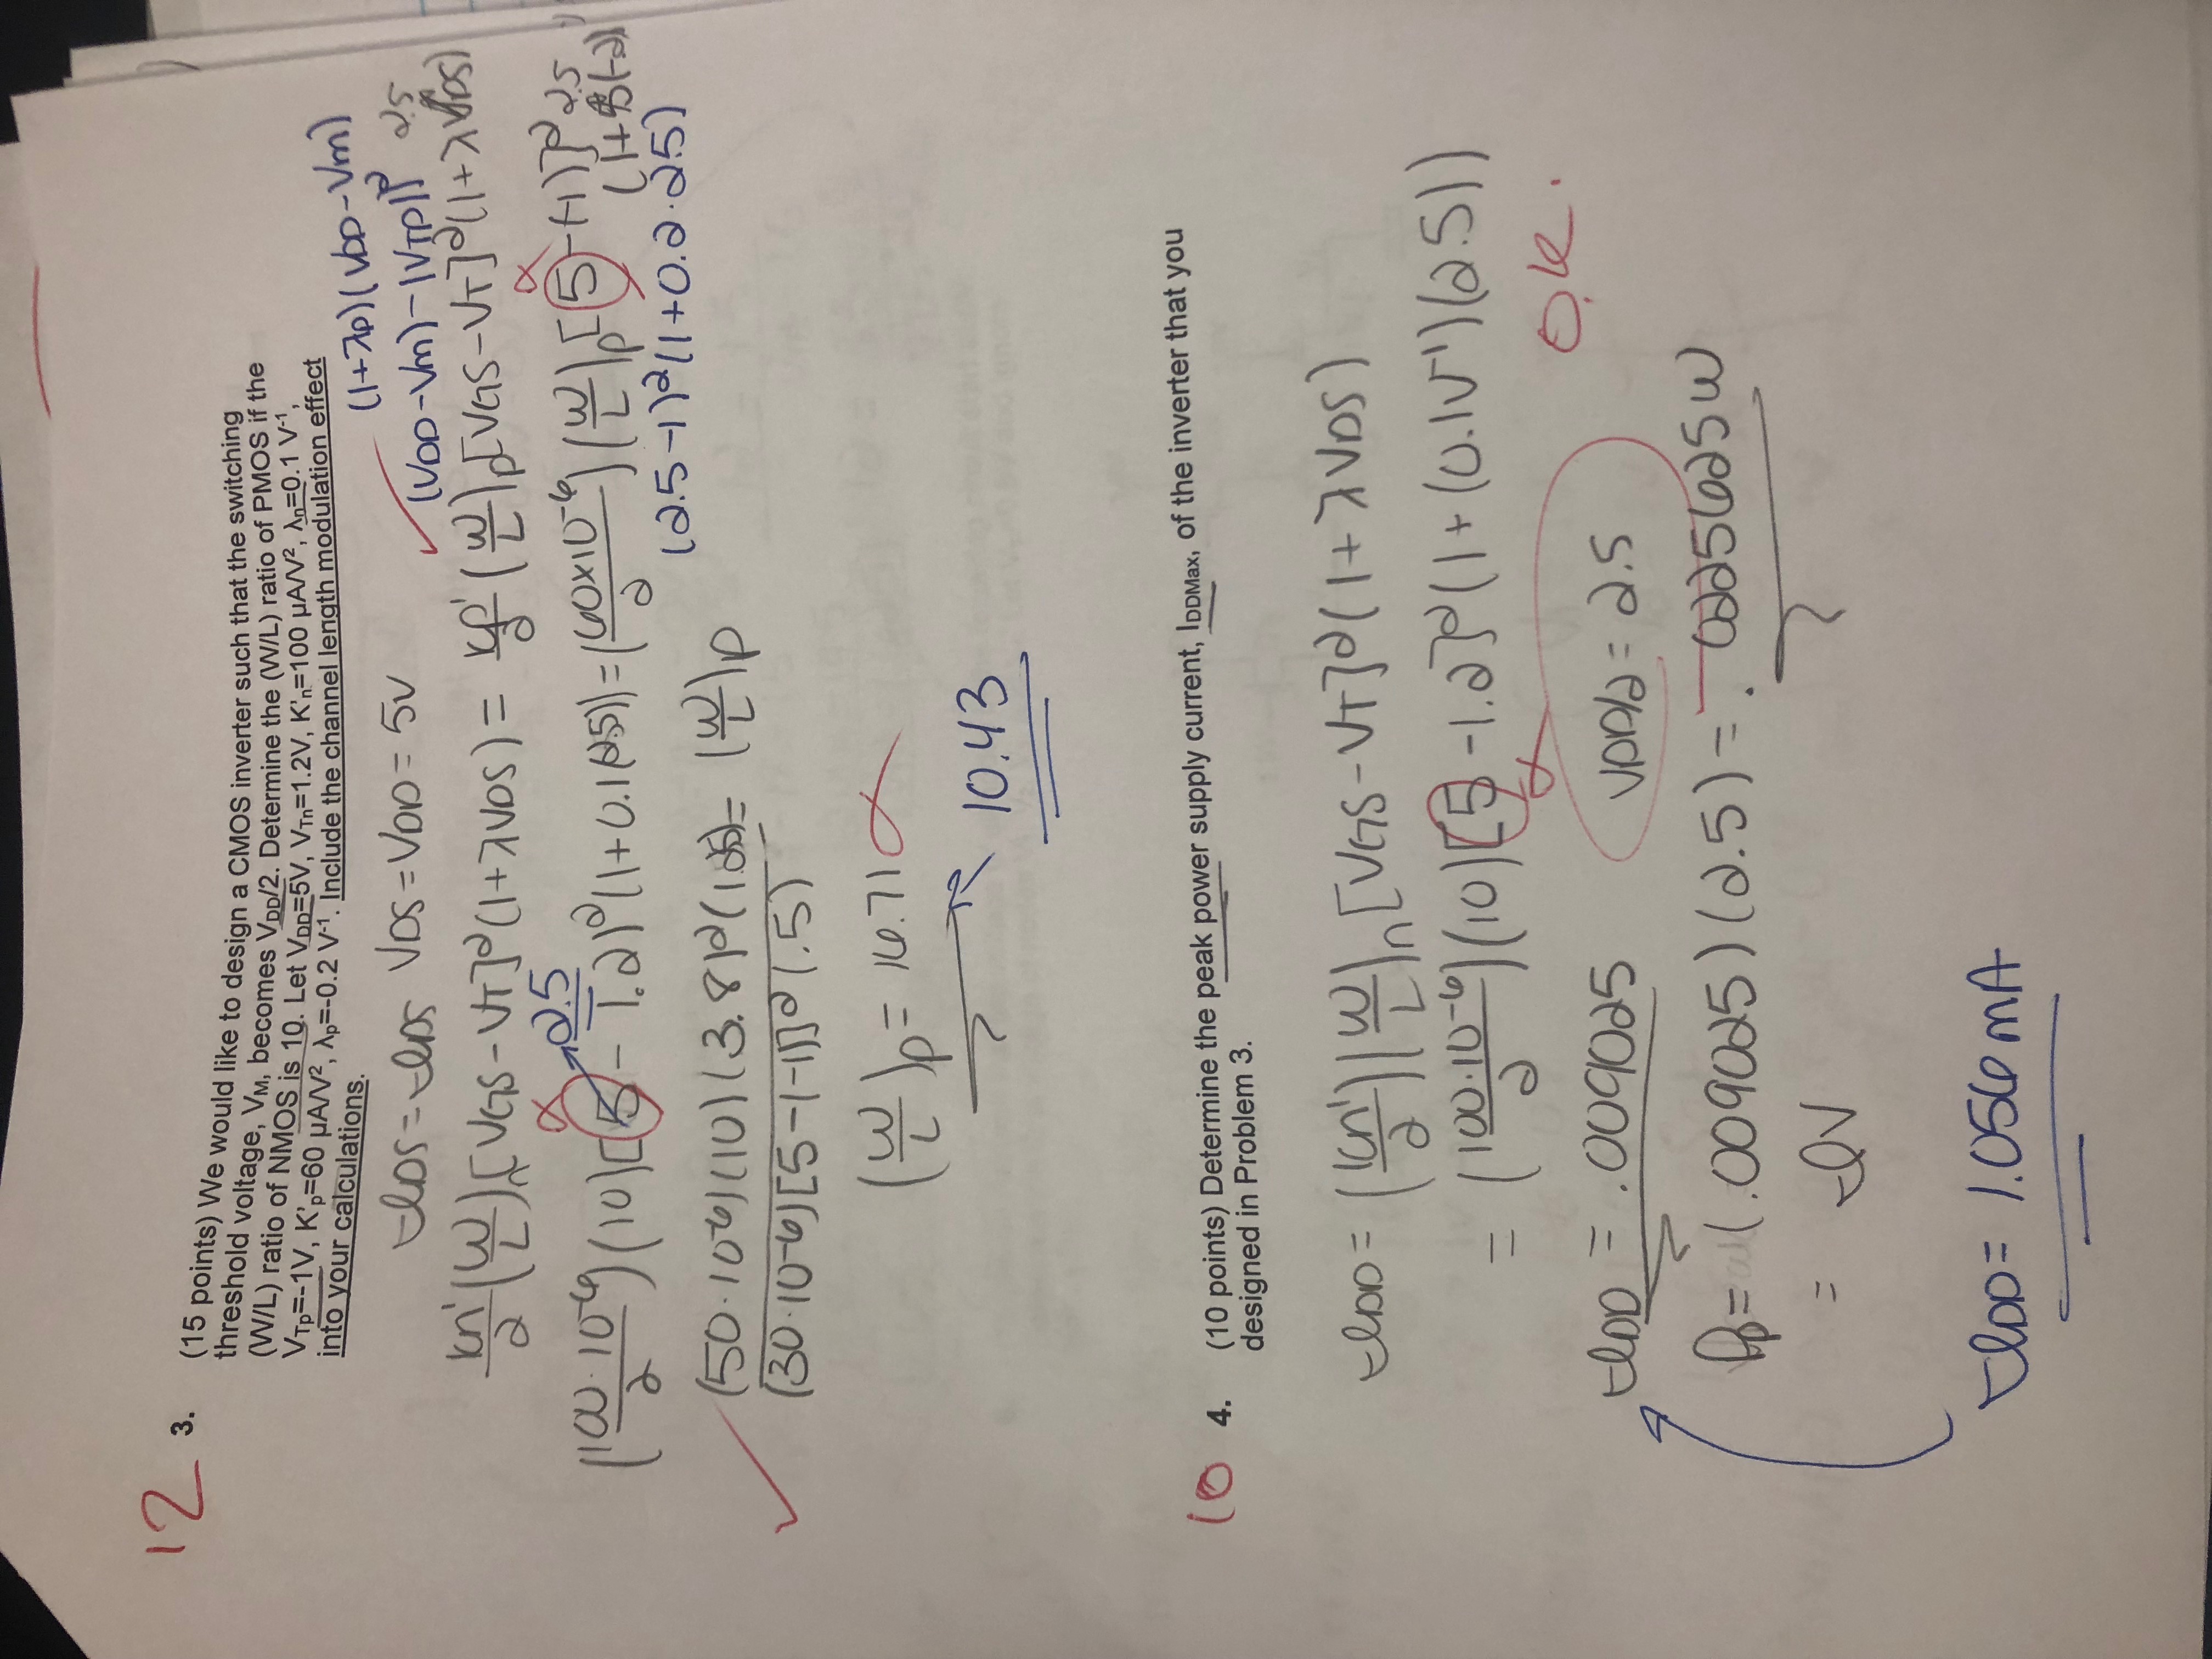 12
3. (15 points) We would like to design a CMOS inverter such that the switching
threshold voltage, VM, becomes VDD/2. Determine the (W/L) ratio of PMOS if the
(W/L) ratio of NMOS is 10. Let VDD=5V, VTn=1.2V, K'n=100 µA/V², λn=0.1 V-1,
VTp=-1V, K'p=60 µA/V², λp=-0.2 V-1. Include the channel length modulation effect
into your calculations.
(1+λp)(VDD-Vm)
IDS = IDS VDS = VDD = 5V
(VDD-Vm)-|VTP|]² 2.5
kn'/2 (W/L)n [VGS-VT]²(1+λVDS) = kp'/2 (W/L)p [VGS-VT]²(1+λVDS)
2.5
(100·10-6/2)(10)[5-1.2)²(1+0.1(2.5)) = (60x10-6/2)(W/L)p[5-(-1)]² 2.5
(2.5-1)²(1+0.2·2.5)
(50·10-6)(10)(3.8)²(1.25) = (W/L)p
(30·10-6)[5-(-1)]²(.5)
(W/L)p = 16.71
10.43
10
4. (10 points) Determine the peak power supply current, IDDMax, of the inverter that you
designed in Problem 3.
IDD = (kn'/2)(W/L)n[VGS-VT]²(1+λVDS)
= (100·10-6/2)(10)[5-1.2]²(1+(0.1V-1)(2.5))
O.K.
IDD = .009025 VDD/2 = 2.5
Pp = (.009025)(2.5) = .0225625W
= IV
IDD = 1.056mA